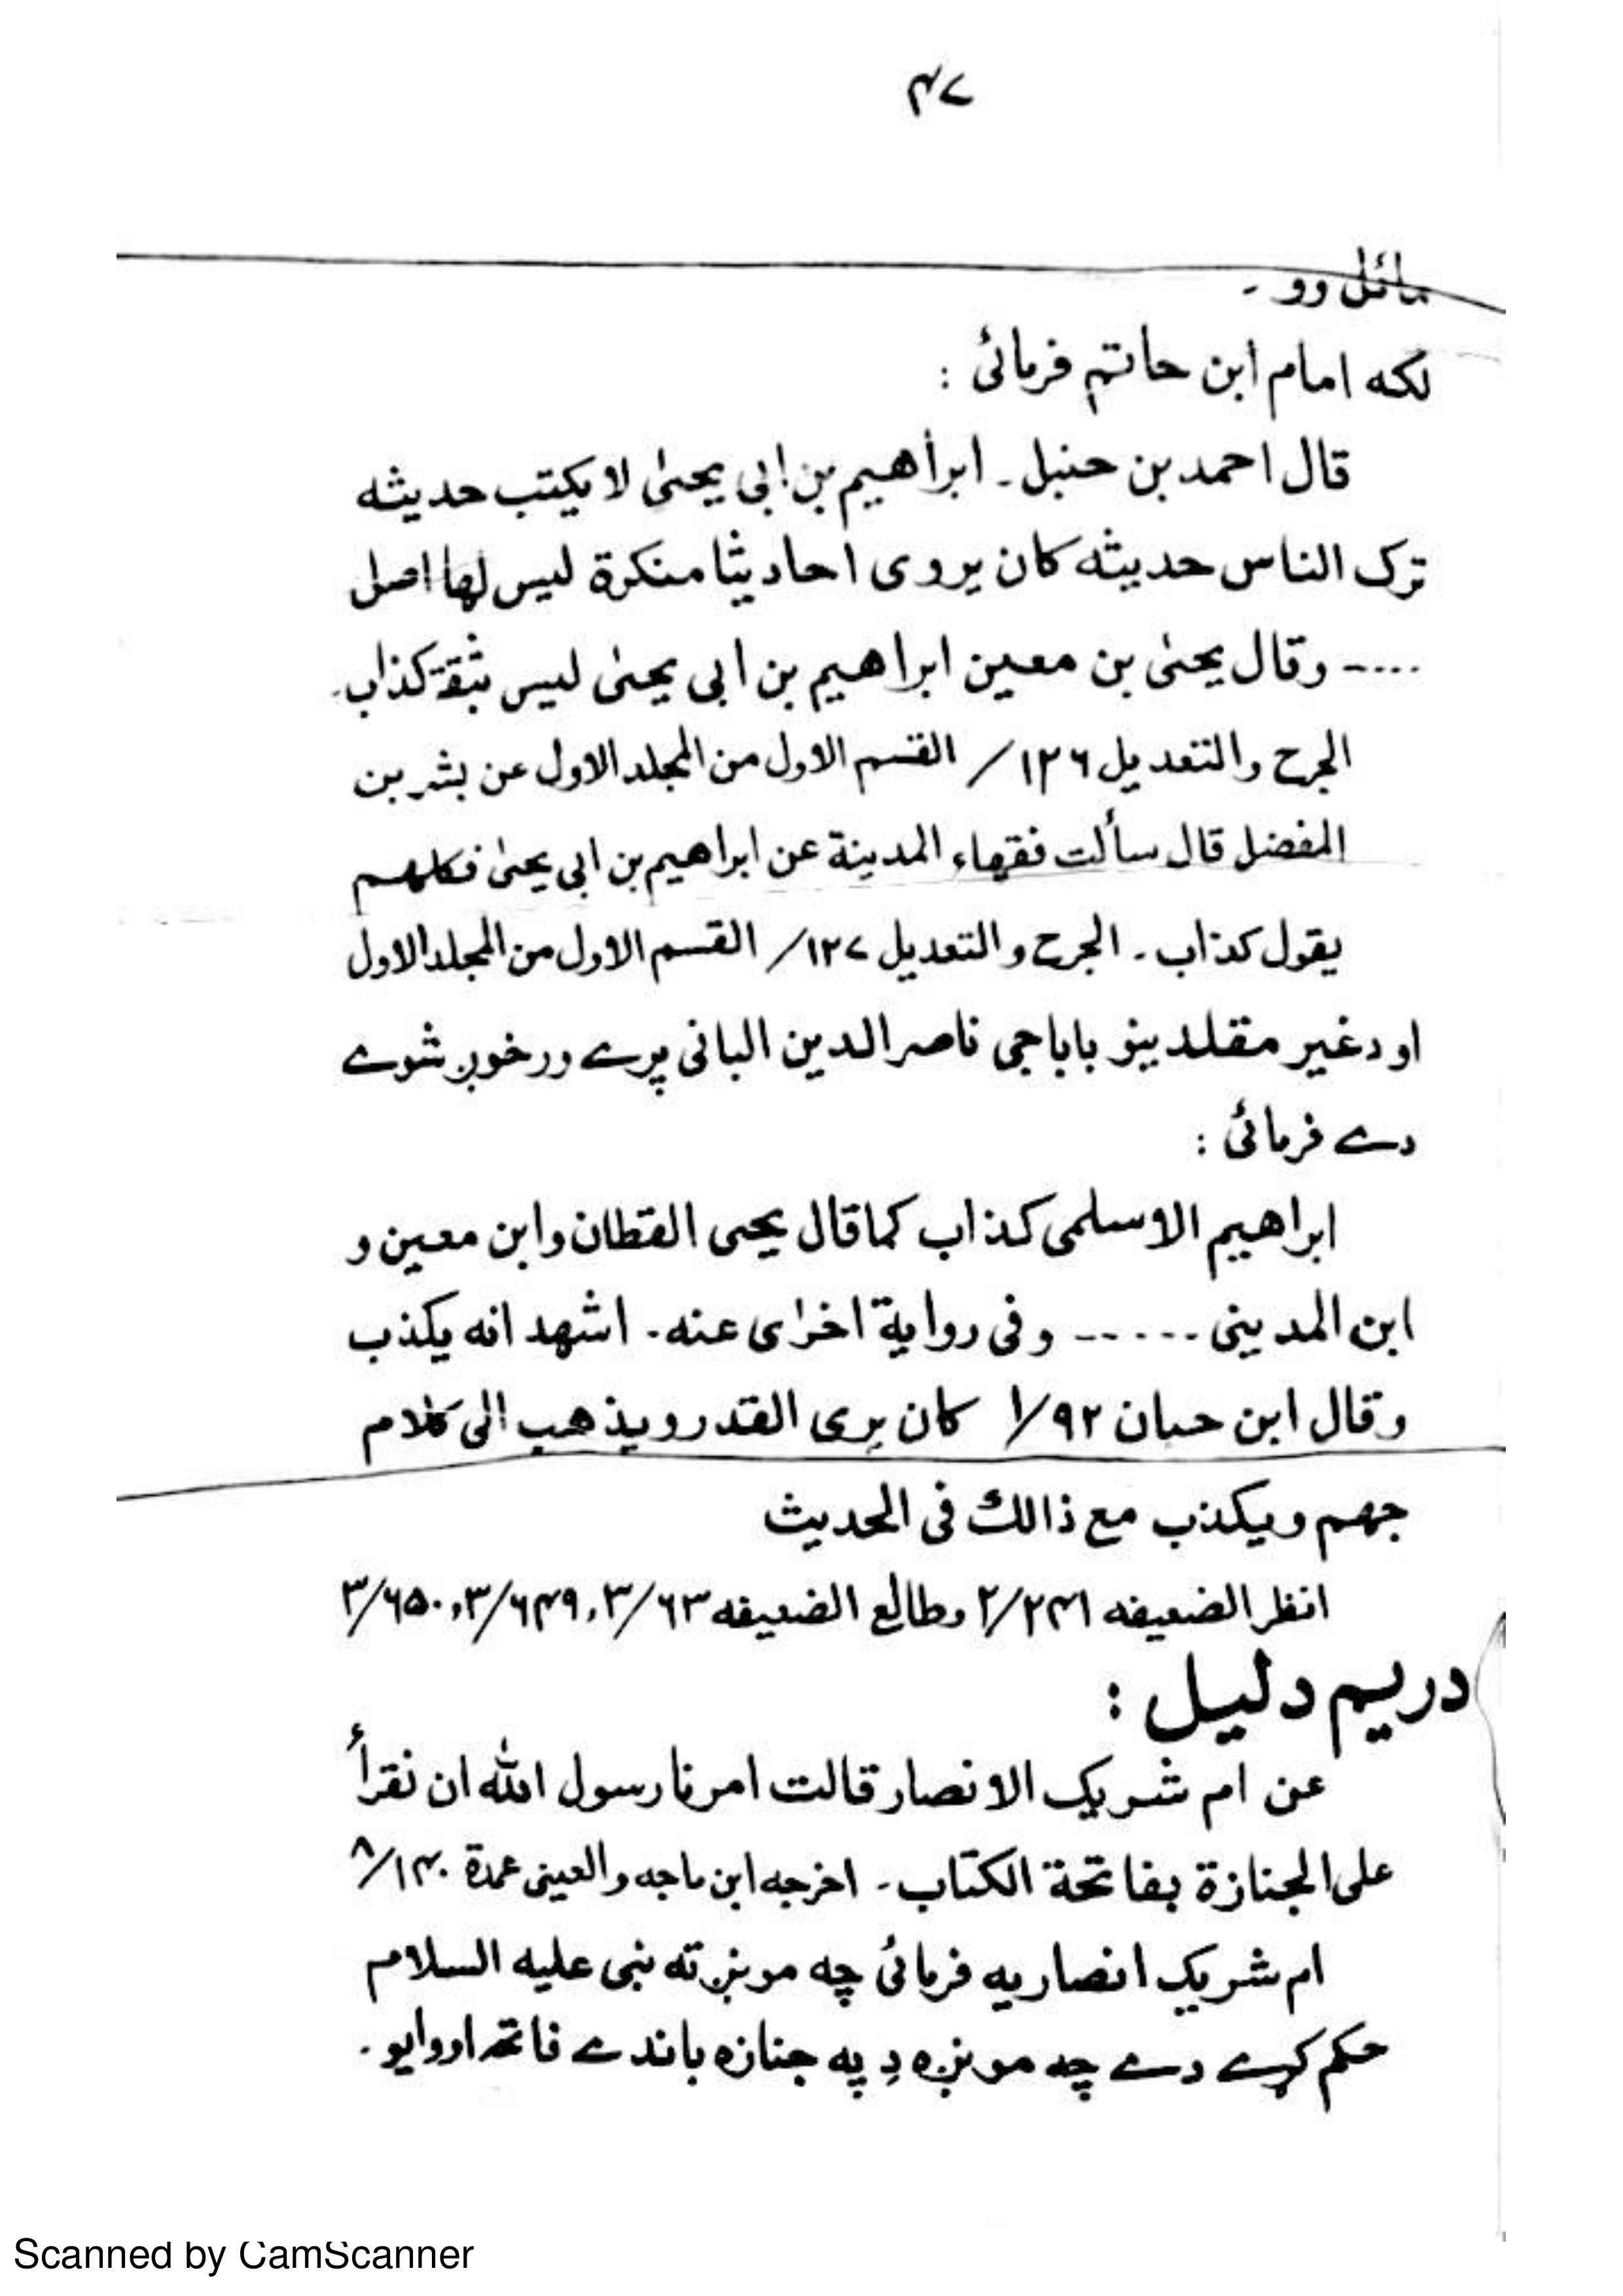 ۴۷
مائل وو ۔
لکه امام ابن حاتم فرمائی :
قال احمد بن حنبل ۔ ابراهیم بن ابی یحیٰی لا یکتب حدیثه
ترک الناس حدیثه کان یروی احادیثا منکرة لیس لها اصل
....- وقال یحیٰی بن معین ابراهیم بن ابی یحیٰی لیس بثقة کذاب۔
الجرح والتعدیل ۱۲۶/ القسم الاول من المجلد الاول عن بشر بن
المفضل قال سألت فقهاء المدینة عن ابراهیم بن ابی یحیٰی فکلهم
یقول کذاب ۔ الجرح والتعدیل ۱۲۷/ القسم الاول من المجلد الاول
او د غیر مقلدینو باباجی ناصر الدین البانی پرے ورخوږ شوے
دے فرمائی :
ابراهیم الاسلمی کذاب کما قال یحیی القطان وابن معین و
ابن المدینی ------ وفی روایة اخرٰی عنه ۔ اشهد انه یکذب
وقال ابن حبان ۱/۹۲ کان یری القدر ویذهب الی کلام
جهم ویکذب مع ذالک فی الحدیث
انظر الضعیفه ۲/۲۴۱ وطالع الضعیفه ۳/۶۳، ۳/۶۴۹، ۳/۶۵۰
دریم دلیل :
عن ام شریک الانصار قالت امرنا رسول الله ان نقرأ
علی الجنازة بفاتحة الکتاب ۔ اخرجه ابن ماجه والعینی عمدة ۸/۱۴۰
ام شریک انصاریه فرمائی چه مونږ ته نبی علیه السلام
حکم کړے دے چه مونږه دِ په جنازه باندے فاتحه اووایو ۔
Scanned by CamScanner